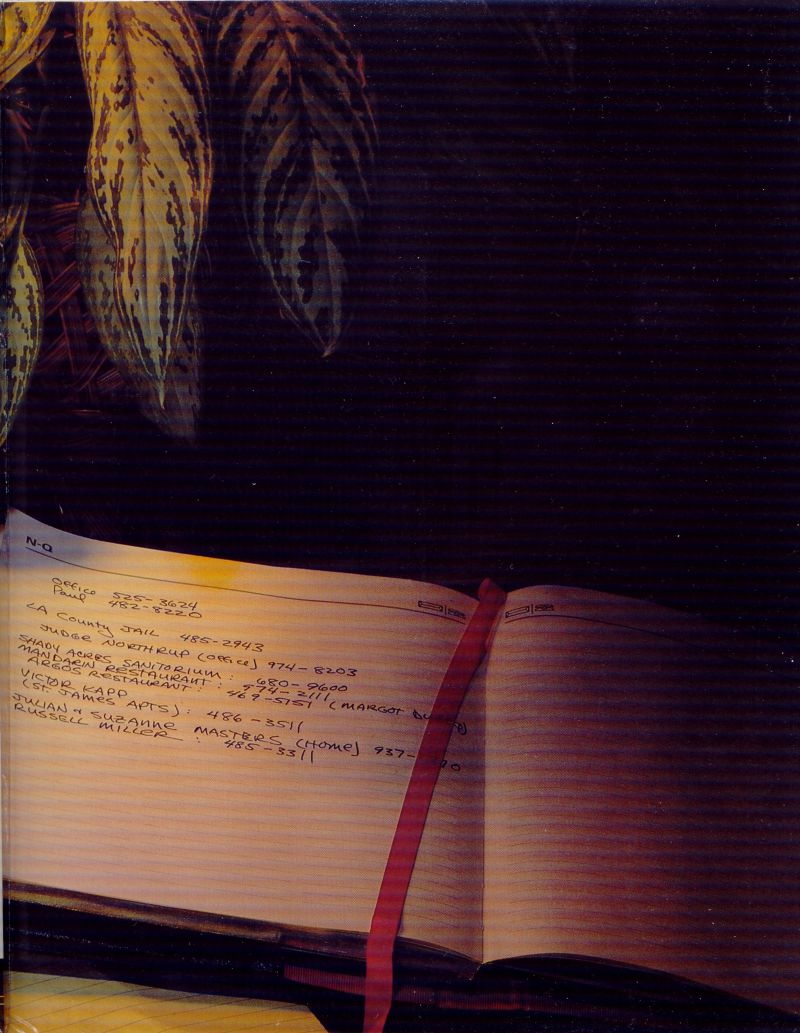 N-Q
Office 525-3624
Paul 482-8220
LA County JAIL 485-2943
JUDGE NORTHRUP (OFFICE) 974-8203
SHADY ACRES SANITORIUM: 680-9600
MANDARIN RESTAURANT: 974-2111
ARGOS RESTAURANT: 469-5151 (MARGOT
VICTOR KAPP
(ST. JAMES APTS): 486-3511
JULIAN & SUZANNE MASTERS (HOME) 937-
RUSSELL MILLER: 485-3311